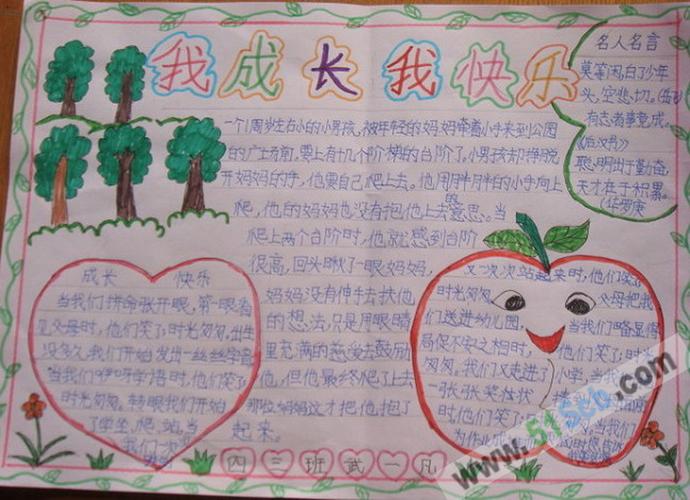 我成长我快乐
名人名言
莫等闲,白了少年
头,空悲切。(岳飞)
有志者事竟成。
《后汉书》
聪明出于勤奋,
天才在于积累。
(华罗庚
一个1周岁左右小的小男孩,被年轻的妈妈牵着小手来到公园
的广场前,要上有十几个阶梯的台阶了。小男孩却挣脱
开妈妈的手,他要自己爬上去。他用胖胖的小手向上
爬,他的妈妈也没有抱他上去的意思。当
爬上两个台阶时,他就感到台阶
很高,回头瞅了一眼妈妈,
妈妈没有伸手去扶他
的想法,只是用眼睛
里充满的慈爱去鼓励
他,但他最终爬了上去
那位妈妈这才把他抱了
起来。
成长 快乐
当我们拼命张开眼,第一眼看
见父母时,他们笑了,时光匆匆,出生
没多久,我们开始发出一丝丝学音
当我们咿呀学语时,他们笑了
时光匆匆。转眼我们开始
了学坐,爬,站,当
我们一次
又一次次站起来时,他们笑了
时光匆匆, 父母把我
们送进幼儿园, 当我们略显得
局促不安之相时, 他们笑了
匆匆。我们又走进了小学,当我们
一张张奖状
时,他们笑了
四三班武一凡
www.515cb.com